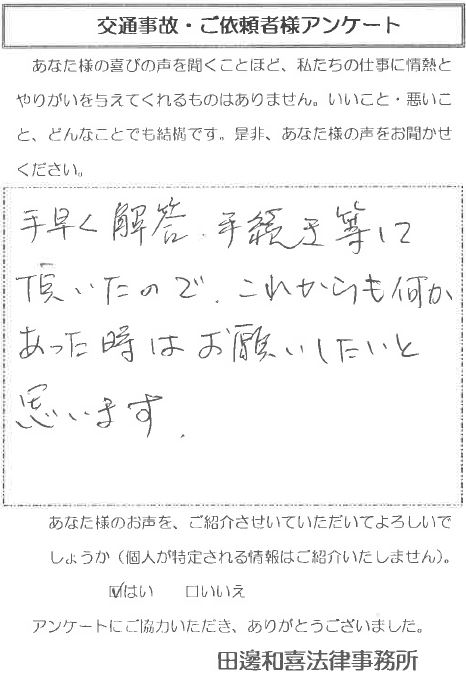 交通事故・ご依頼者様アンケート
あなた様の喜びの声を聞くことほど、私たちの仕事に情熱と
やりがいを与えてくれるものはありません。いいこと・悪いこ
と、どんなことでも結構です。是非、あなた様の声をお聞かせ
ください。
手早く解答、手続き等して
頂いたので、これからも何か
あった時はお願いしたいと
思います.
あなた様のお声を、ご紹介させていただいてよろしいで
しょうか（個人が特定される情報はご紹介いたしません）。
☑はい　□いいえ
アンケートにご協力いただき、ありがとうございました。
田邊和喜法律事務所